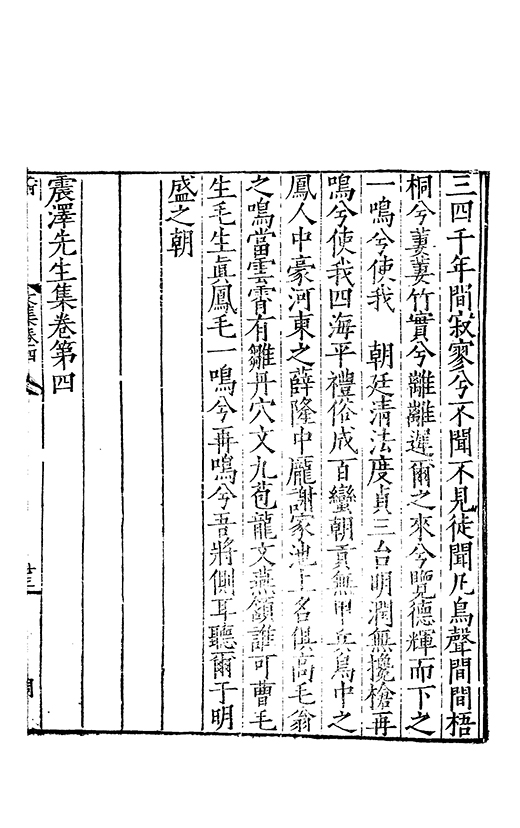 三四千年間寂寥兮不聞不見徒聞凡鳥聲間間梧
桐兮萋萋竹實兮離離遲爾之來兮覽德輝而下之
一鳴兮使我　朝廷清法度貞三台明潤無攙槍再
鳴兮使我四海平禮俗成百蠻朝貢無甲兵鳥中之
鳳人中豪河東之薛隆中龐謝家池上名俱高毛翁
之鳴當雲霄有雛丹穴文九苞龍文燕頷誰可曹毛
生毛生眞鳳毛一鳴兮再鳴兮吾將側耳聽爾于明
盛之朝
震澤先生集卷第四
文集卷四
廿三